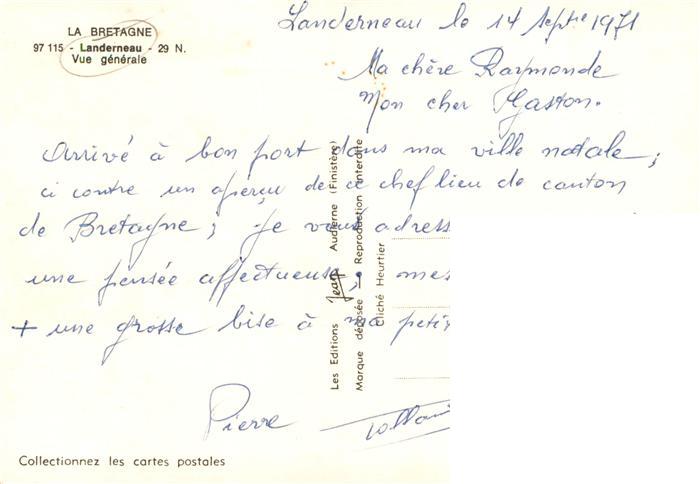 LA BRETAGNE
97 115 - Landerneau - 29 N.
Vue générale
Landerneau le 14 Septre 1971
Ma chère Raymonde
Mon cher Gaston.
Arrivé à bon port dans ma ville natale ;
ci contre un aperçu de ce chef lieu de canton
de Bretagne ; je vous adress
une pensée affectueuse, mes
+ une grosse bise à ma peti
Pierre
Les Editions Jean Audierne (Finistère)
Marque déposée — Reproduction interdite
Cliché Heurtier
Collectionnez les cartes postales